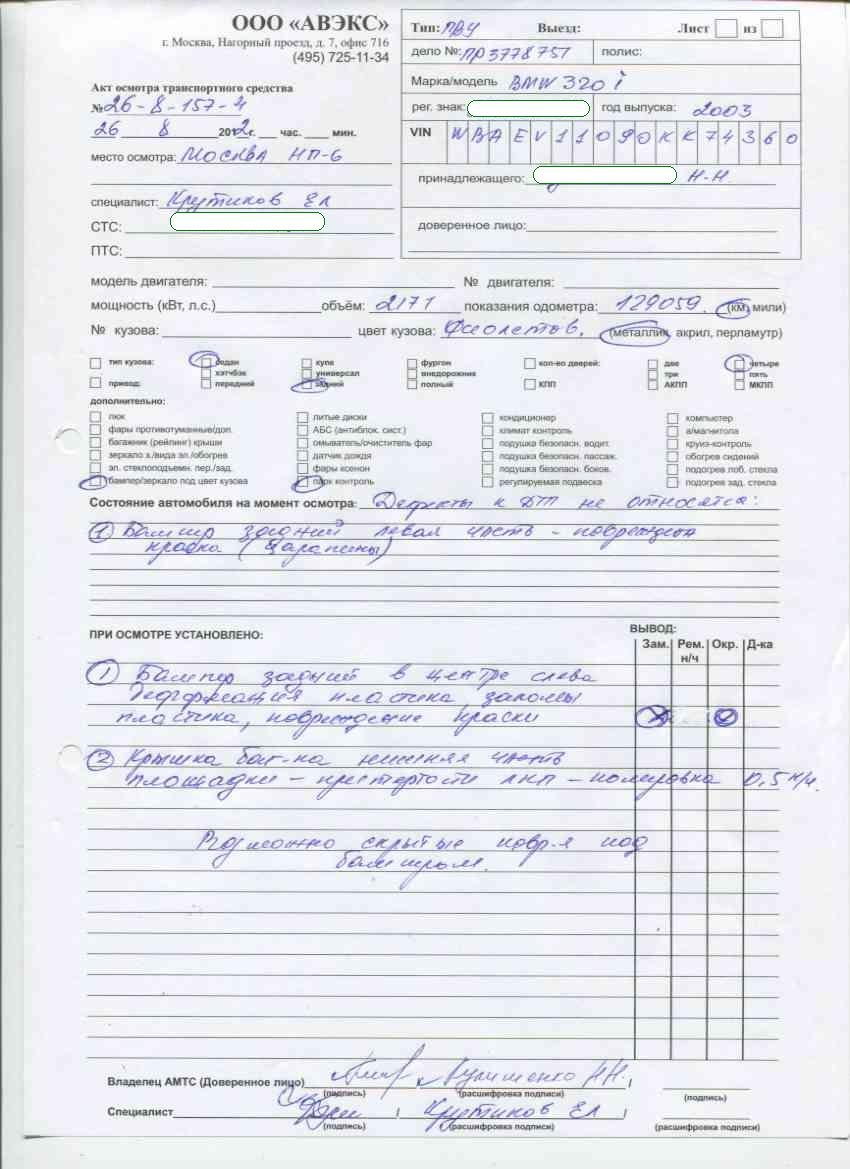 ООО «АВЭКС»
г. Москва, Нагорный проезд, д. 7, офис 716
(495) 725-11-34
Тип: ПВУ Выезд: Лист из
дело №: ПР3778751 полис:
Марка/модель BMW 320 i
рег. знак: год выпуска: 2003
VIN WBAEV11090KK74360
принадлежащего: Н.Н.
доверенное лицо:
Акт осмотра транспортного средства
№ 26-8-157-4
26 8 2012г. час. мин.
место осмотра: Москва НП-6
специалист: Крутиков Ел
СТС:
ПТС:
модель двигателя: № двигателя:
мощность (кВт, л.с.) объём: 2171 показания одометра: 129059. (км, мили)
№ кузова: цвет кузова: Фиолетов. (металлик, акрил, перламутр)
тип кузова: седан купе фургон кол-во дверей: две четыре
хэтчбэк универсал внедорожник три пять
привод: передний задний полный КПП АКПП МКПП
дополнительно:
люк литые диски кондиционер компьютер
фары противотуманные/доп. АБС (антиблок. сист.) климат контроль а/магнитола
багажник (рейлинг) крыши омыватель/очиститель фар подушка безопасн. водит. круиз-контроль
зеркало з./вида эл./обогрев датчик дождя подушка безопасн. пассаж. обогрев сидений
эл. стеклоподъемн. пер./зад. фары ксенон подушка безопасн. боков. подогрев лоб. стекла
бампер/зеркало под цвет кузова парк контроль регулируемая подвеска подогрев зад. стекла
Состояние автомобиля на момент осмотра: Дефекты к ДТП не относятся:
1) Бампер задний левая часть - поврежден
краска (царапины)
ПРИ ОСМОТРЕ УСТАНОВЛЕНО: ВЫВОД:
Зам. Рем. н/ч Окр. Д-ка
1 Бампер задний в центре слева
деформация пластика, заломы
пластика, повреждение краски
2 Крышка баг-ка нижняя часть
площадки - притертости лкп - полировка 0,5 н/ч.
Возможно скрытые повр-я под
бампером.
Владелец АМТС (Доверенное лицо) Н.Н.
(подпись) (расшифровка подписи) (подпись)
Специалист Крутиков Ел
(подпись) (расшифровка подписи) (расшифровка подписи)